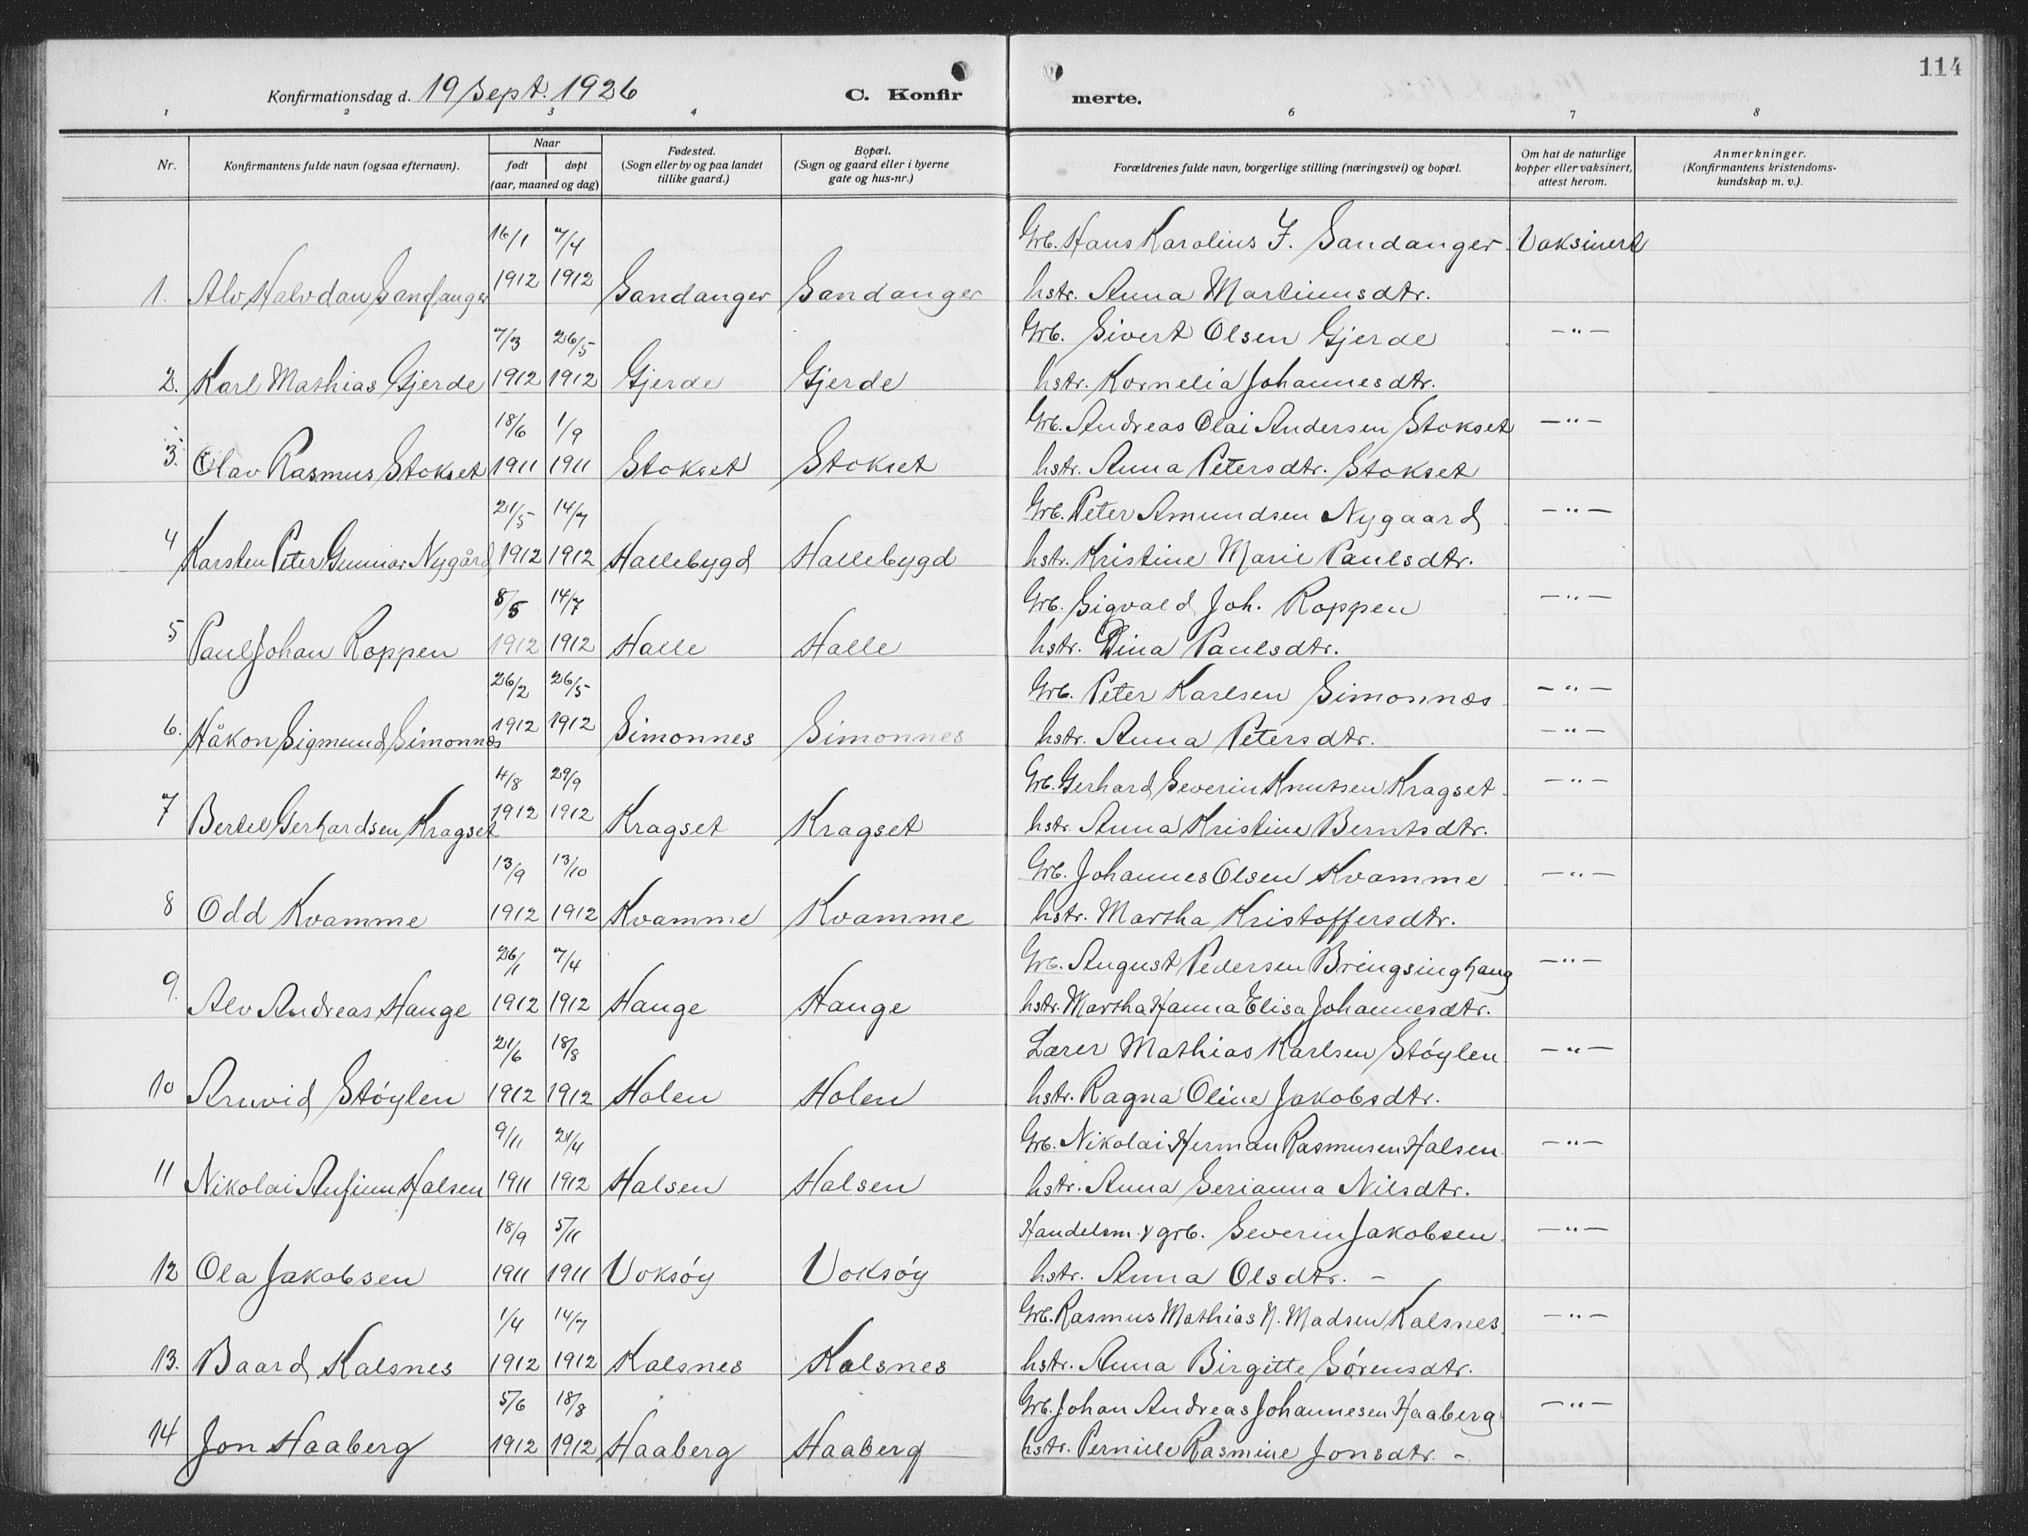 114
Konfirmationsdag d. 19 Sept. 1926 C. Konfirmerte.
1 2 3 4 6 7 8
Nr. Konfirmantens fulde navn (ogsaa efternavn). Naar født døpt (aar, maaned og dag) Fødested. (Sogn eller by og paa landet tillike gaard.) Bopæl. (Sogn og gaard eller i byerne gate og hus-nr.) Forældrenes fulde navn, borgerlige stilling (næringsvei) og bopæl. Om hat de naturlige kopper eller vaksinert, attest herom. Anmerkninger. (Konfirmantens kristendoms-kundskap m. v.).
16/1 7/4 Grb. Hans Karolius J. Sandanger Vaksinert
1. Alv Halvdan Sandanger 1912 1912 Sandanger Sandanger hstr. Anna Martinusdtr.
7/3 26/5 Grb. Sivert Olsen Gjerde -"-
2. Karl Mathias Gjerde 1912 1912 Gjerde Gjerde hstr. Kornelia Johannesdtr.
18/6 1/9 Grb. Andreas Olai Andersen Stokset -"-
3. Olav Rasmus Stokset 1911 1911 Stokset Stokset hstr. Anna Petersdtr. Stokset
21/5 14/7 Grb. Peter Amundsen Nygaard -"-
4 Karsten Peter Gunnar Nygård 1912 1912 Hallebygd Hallebygd hstr. Kristine Marie Paulsdtr.
8/5 14/7 Grb. Sigvald Joh. Roppen -"-
5 Paul Johan Roppen 1912 1912 Halle Halle hstr. Dina Paulsdtr.
26/2 26/5 Grb. Peter Karlsen Simonnæs -"-
6. Håkon Sigmund Simonnæs 1912 1912 Simonnes Simonnes hstr. Anna Petersdtr. -"-
4/8 29/9 Grb. Gerhard Severin Knutsen Kragset -"-
7 Bertel Gerhardsen Kragset 1912 1912 Kragset Kragset hstr. Anna Kristine Berntsdtr.
13/9 13/10 Grb. Johannes Olsen Kvamme -"-
8 Odd Kvamme 1912 1912 Kvamme Kvamme hstr. Martha Kristoffersdtr.
26/1 7/4 Grb. August Pedersen Bringsinghaug -"-
9. Alv Andreas Hauge 1912 1912 Hauge Hauge hstr. Martha Hanna Elisa Johannesdtr.
21/6 18/8 Lærer Mathias Karlsen Støylen -"-
10 Arnvid Støylen 1912 1912 Holen Holen hstr. Ragna Oline Jakobsdtr.
9/11 21/4 Grb. Nikolai Herman Rasmusen Halsen -"-
11 Nikolai Anfinn Halsen 1911 1912 Halsen Halsen hstr. Anna Serianna Nilsdtr.
18/9 5/11 Handelsm. & grb. Severin Jakobsen -"-
12 Ola Jakobsen 1911 1911 Voksøy Voksøy hstr. Anna Olsdtr. -
1/4 14/7 Grb. Rasmus Mathias N. Madsen Kalsnes -"-
13. Baard Kalsnes 1912 1912 Kalsnes Kalsnes hstr. Anna Birgitte Sørensdtr.
5/6 18/8 Grb. Johan Andreas Johannesen Haaberg -"-
14 Jon Haaberg 1912 1912 Haaberg Haaberg hstr. Pernille Rasmine Jonsdtr. -